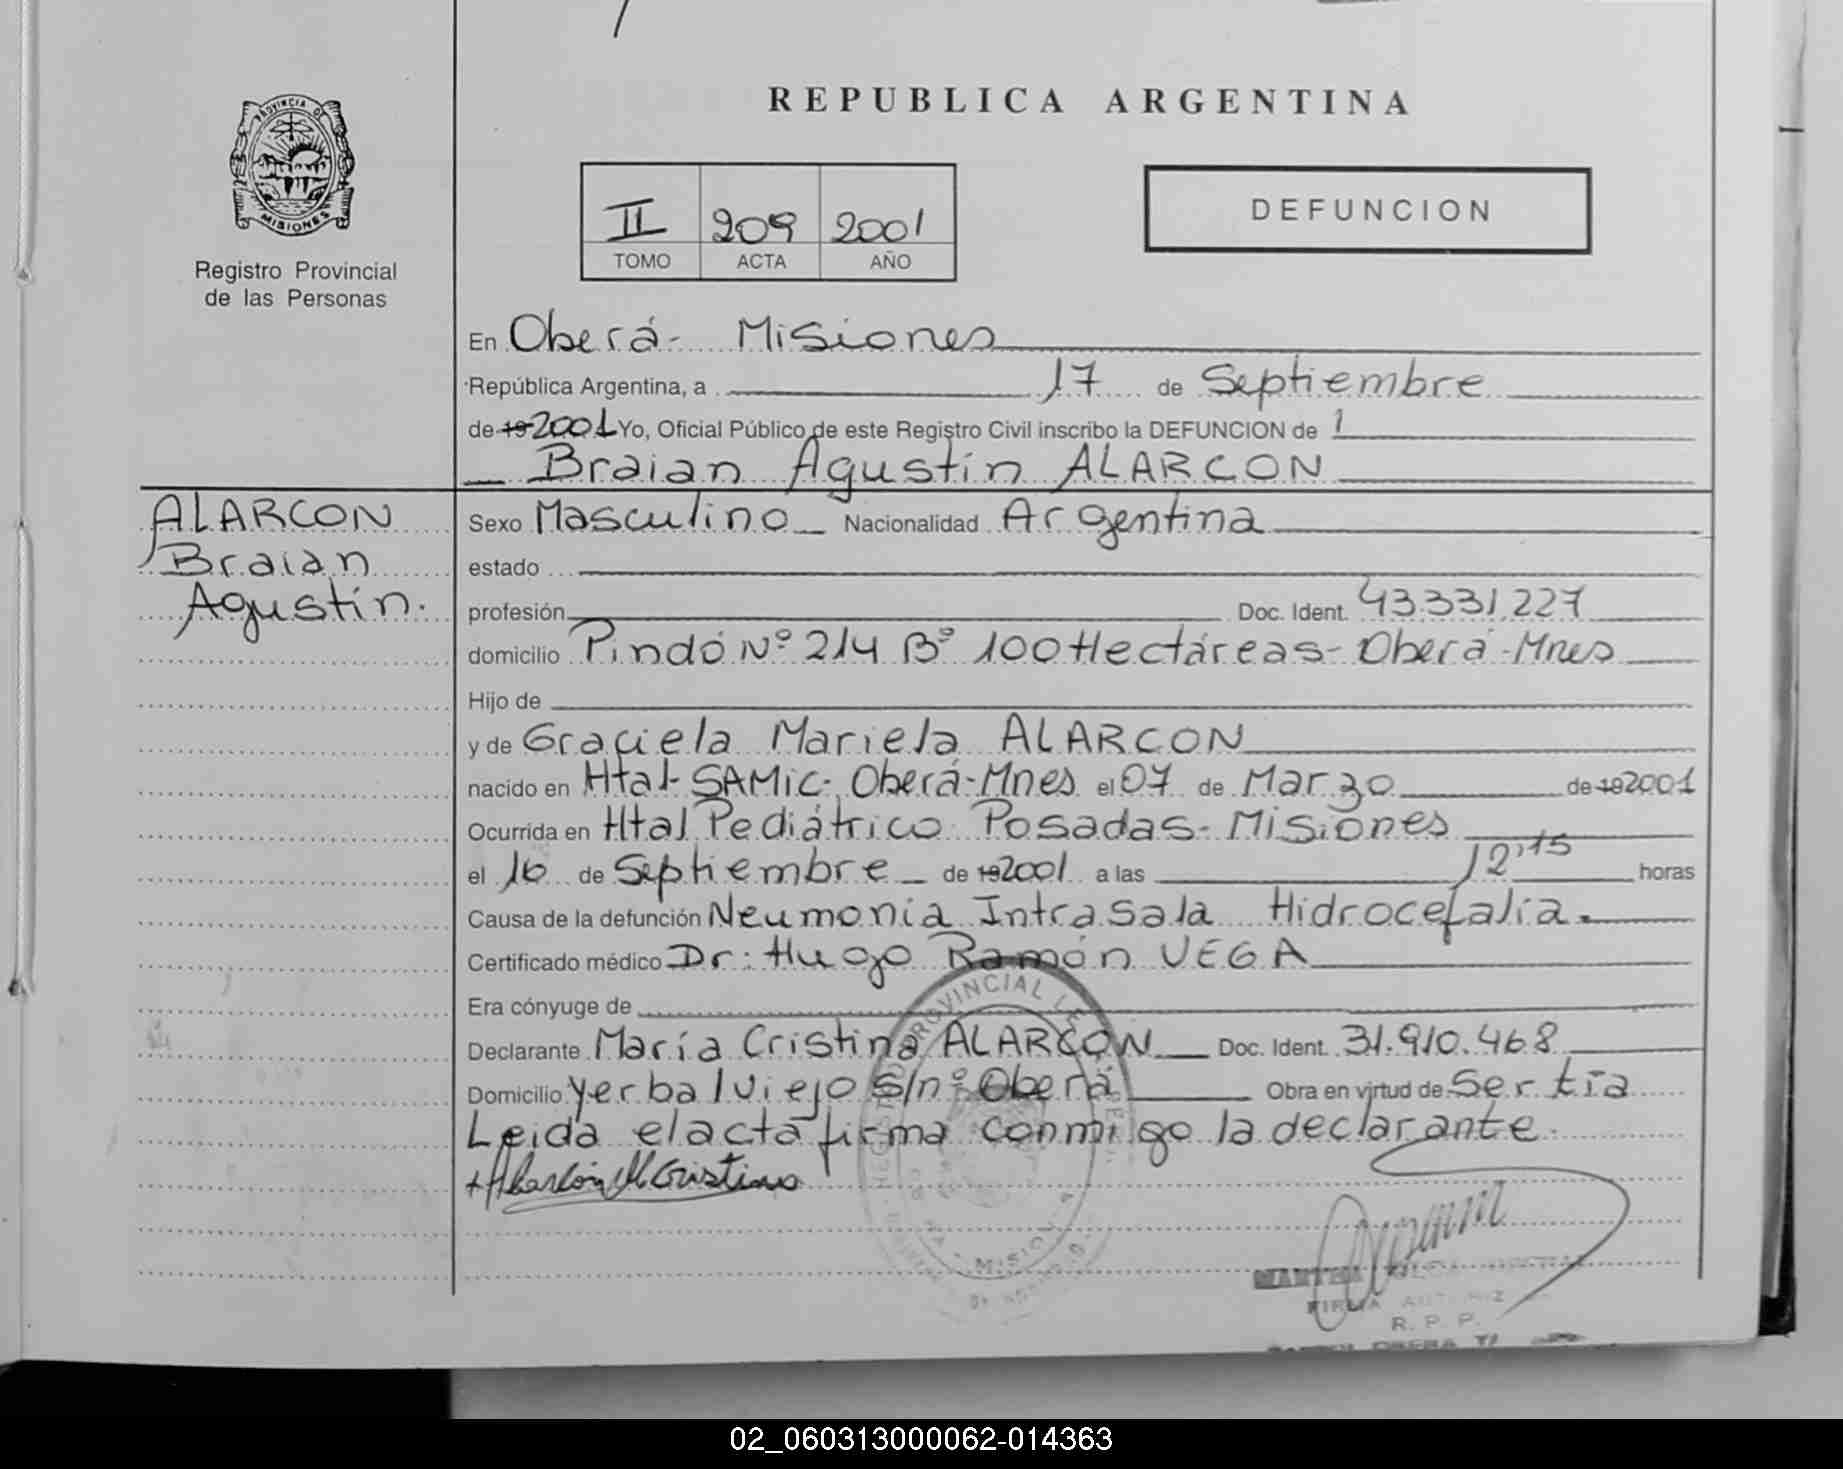 REPUBLICA ARGENTINA
PROVINCIA DE
MISIONES
Registro Provincial
de las Personas
II 209 2001
TOMO ACTA AÑO
DEFUNCION
En Oberá- Misiones
República Argentina, a 17 de Septiembre
de 19 2001 Yo, Oficial Público de este Registro Civil inscribo la DEFUNCION de 1
Braian Agustín ALARCON
ALARCON
Braian
Agustín.
Sexo Masculino Nacionalidad Argentina
estado
profesión Doc. Ident. 43.331.227
domicilio Pindó Nº 214 Bº 100 Hectáreas- Oberá-Mnes
Hijo de
y de Graciela Mariela ALARCON
nacido en Htal- SAMIC. Oberá-Mnes el 07 de Marzo de 19 2001
Ocurrida en Htal Pediátrico Posadas- Misiones
el 16 de Septiembre de 19 2001 a las 12'15 horas
Causa de la defunción Neumonía Intrasala Hidrocefalia.
Certificado médico Dr: Hugo Ramón VEGA
Era cónyuge de
Declarante María Cristina ALARCON Doc. Ident. 31.910.468
Domicilio Yerbal viejo s/nº Oberá Obra en virtud de Ser tía
Leida el acta firma conmigo la declarante.
Alarcón M Cristina
PROVINCIAL
MISIO
MARTHA
FIRMA AUTORIZ
R. P. P.
OBERA
02_060313000062-014363